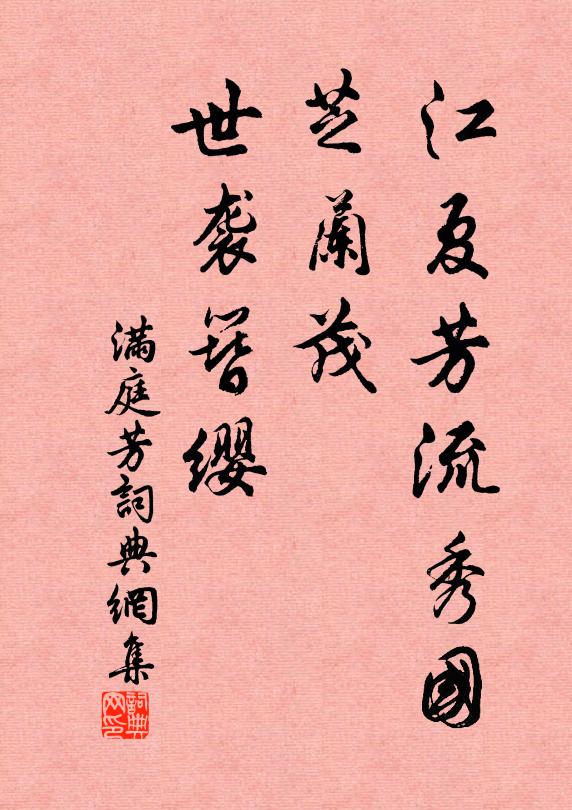 江夏芳流秀國
芝蘭茂
世袭簪缨
滿庭芳詞典網集
詞典
网印